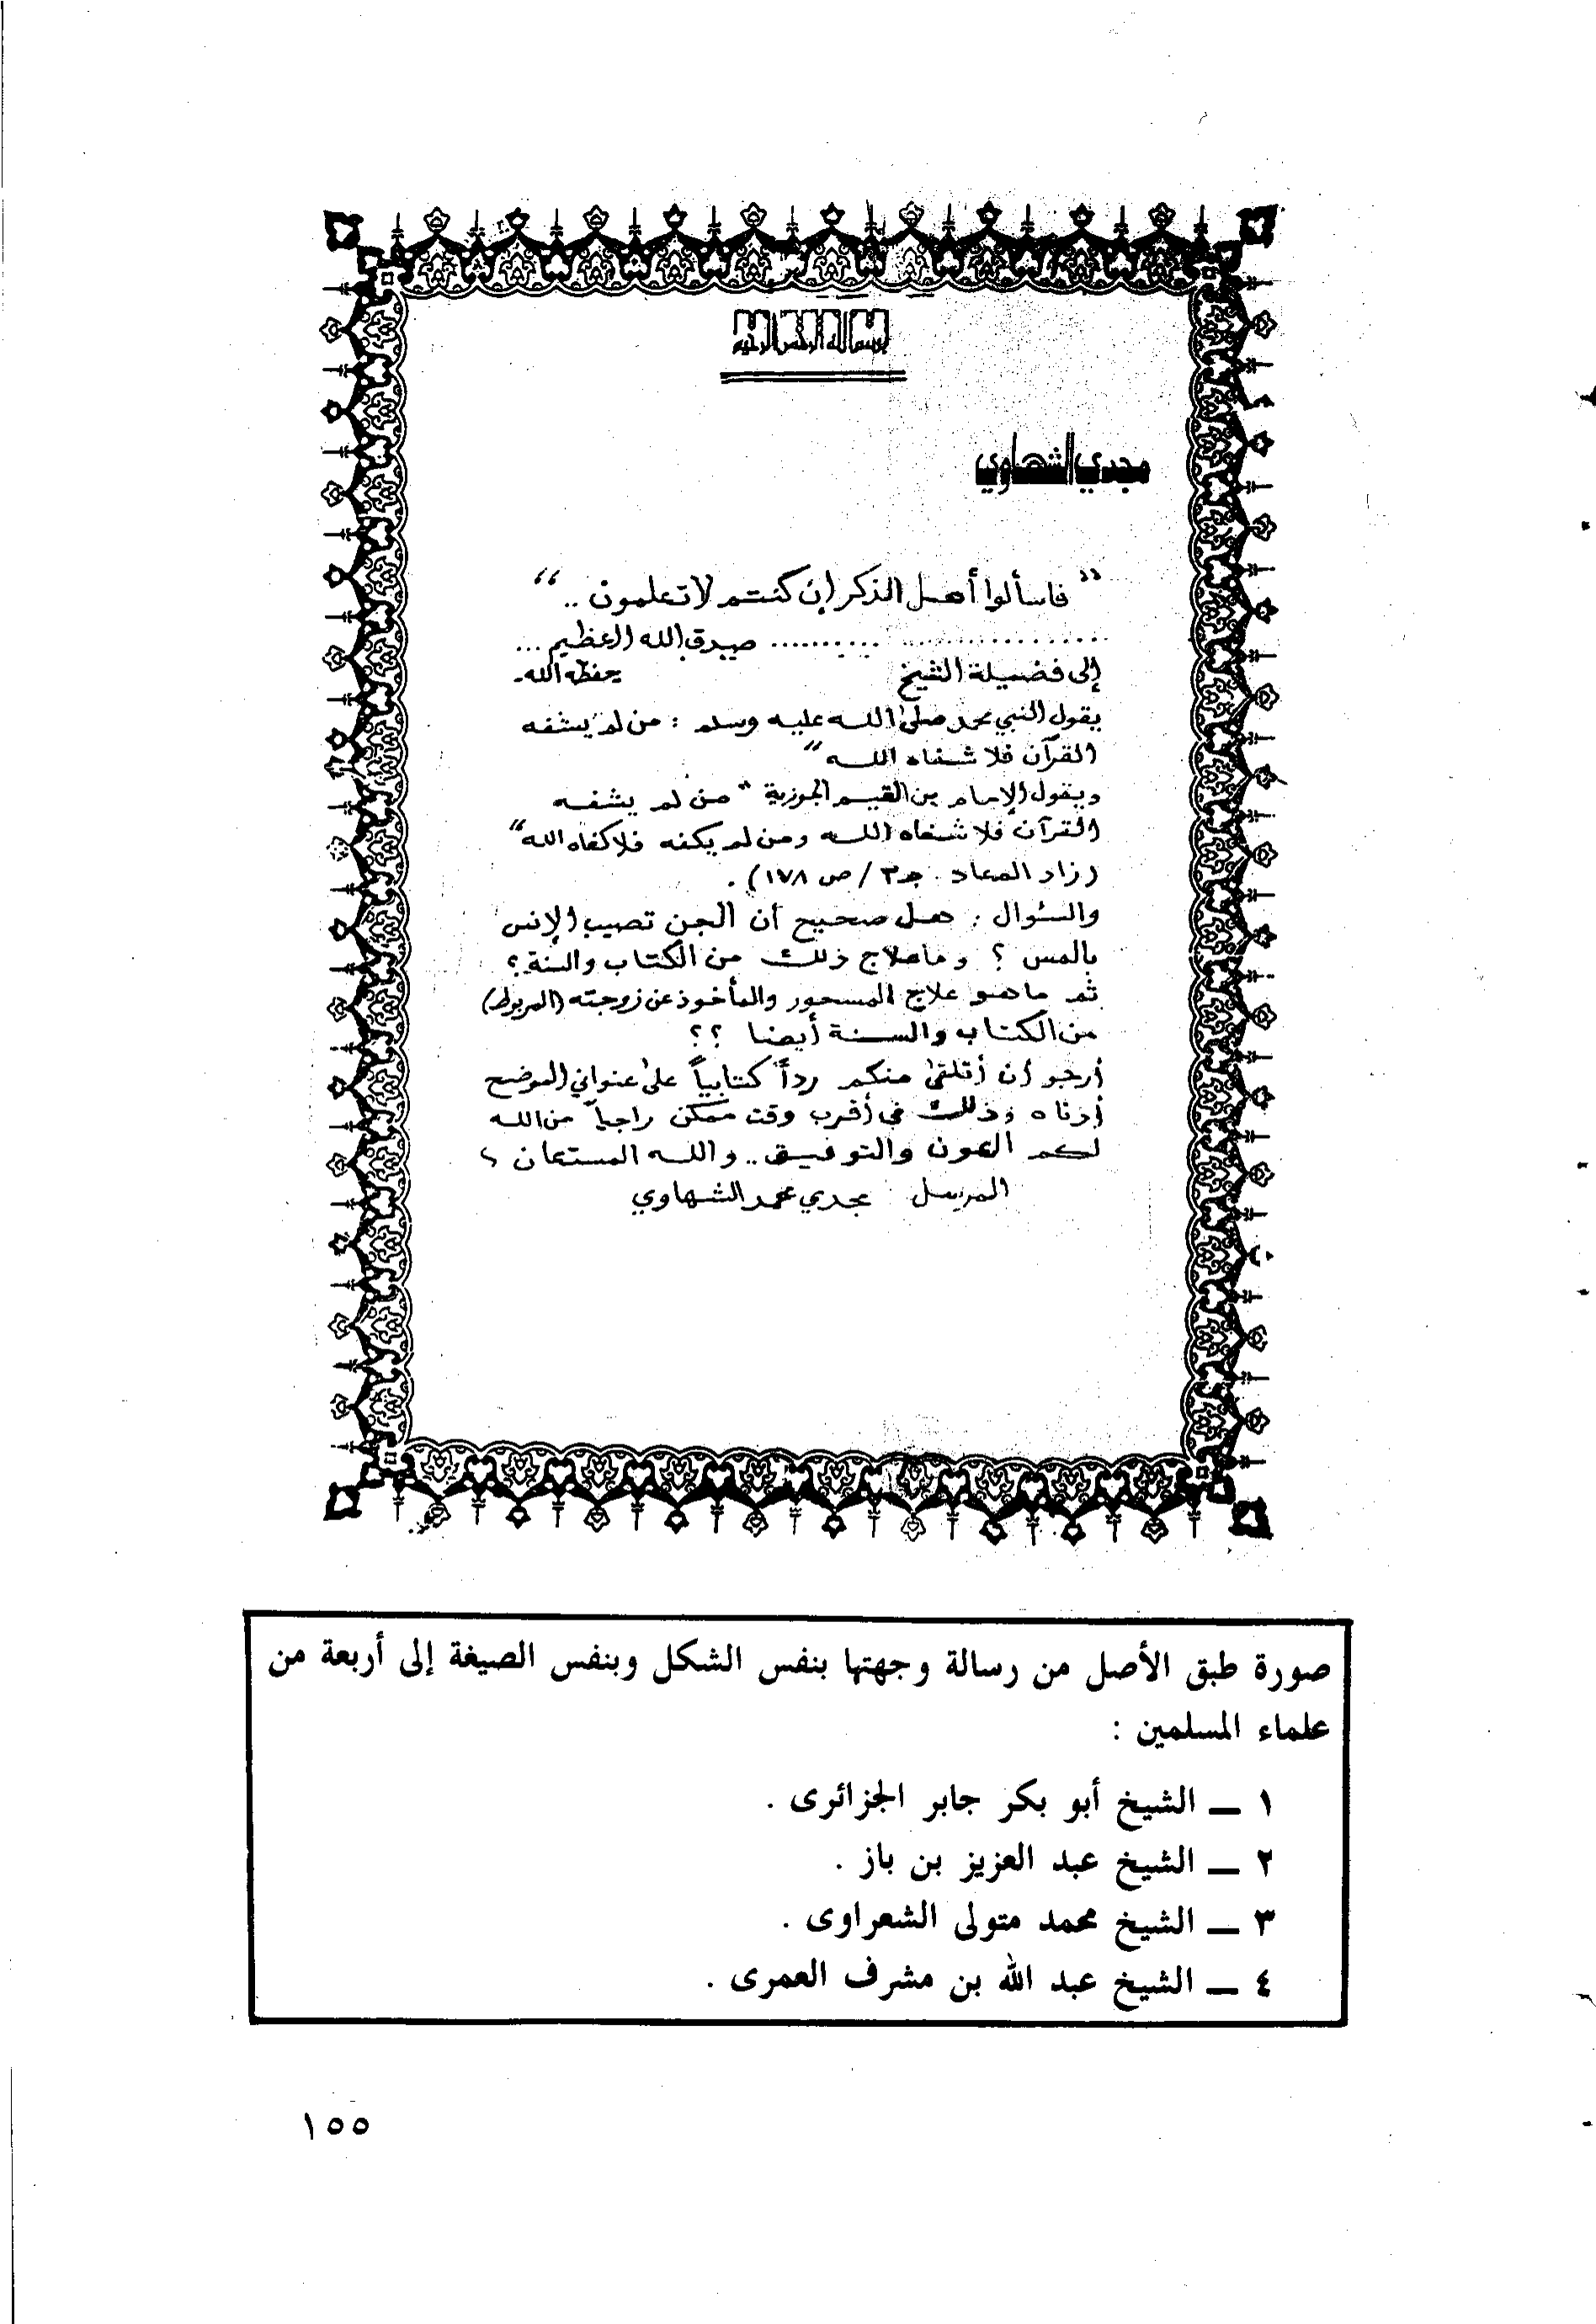 بسم الله الرحمن الرحيم
مجدي الشهاوي
" فاسألوا أهل الذكر إن كنتم لا تعلمون .. "
.................. .......... صدق الله العظيم ...
إلى فضيلة الشيخ يحفظه الله.
يقول النبي محمد صلى الله عليه وسلم : من لم يشفه
القرآن فلا شفاه الله "
ويقول الإمام بن القيم الجوزية " من لم يشفه
القرآن فلا شفاه الله ومن لم يكفه فلا كفاه الله "
( زاد المعاد . جـ٣ / ص ١٧٨ ) .
والسئوال : هل صحيح أن الجن تصيب الإنس
بالمس ؟ وما علاج ذلك من الكتاب والسنة ؟
ثم ما هو علاج المسحور والمأخوذ عن زوجته (المربوط)
من الكتاب والسنة أيضا ؟؟
أرجو أن أتلقى منكم رداً كتابياً على عنواني الموضح
أدناه وذلك في أقرب وقت ممكن راجياً من الله
لكم العون والتوفيق .. والله المستعان ،
المرسل : مجدي محمد الشهاوي
صورة طبق الأصل من رسالة وجهتها بنفس الشكل وبنفس الصيغة إلى أربعة من
علماء المسلمين :
١ ــ الشيخ أبو بكر جابر الجزائرى .
٢ ــ الشيخ عبد العزيز بن باز .
٣ ــ الشيخ محمد متولى الشعراوى .
٤ ــ الشيخ عبد الله بن مشرف العمرى .
١٥٥